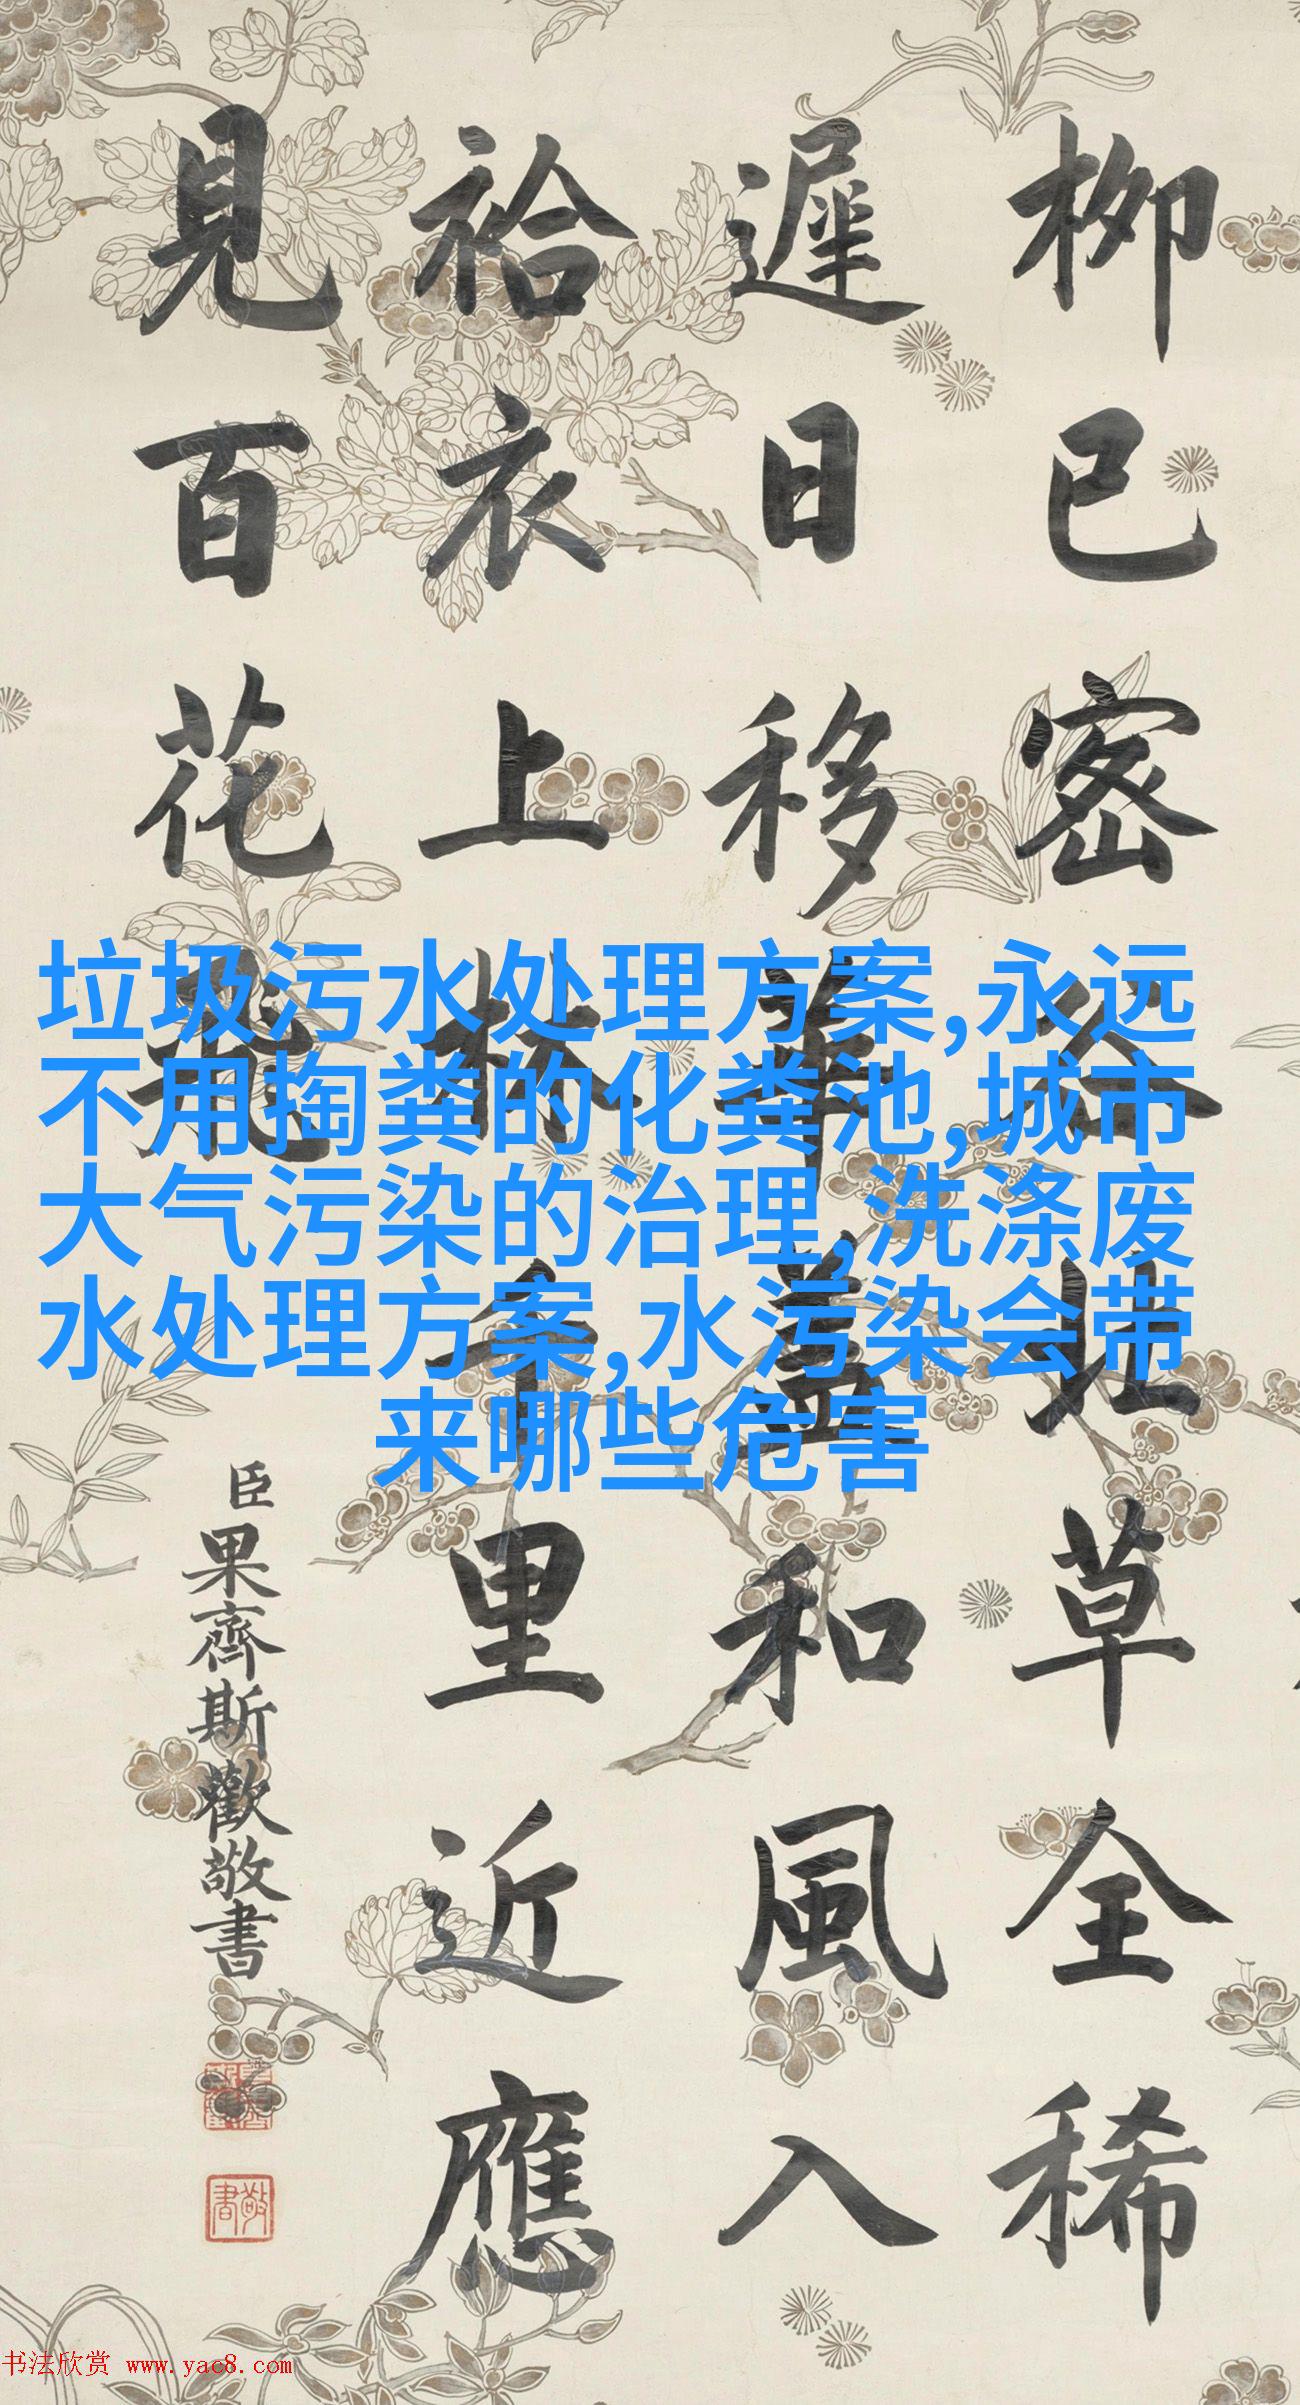 柳已密谷北草全稀
遲日移華蓋和風入
袷衣上林千里近應
見百花飛
臣果齊斯歡敬書
敬書
垃圾污水处理方案,永远
不用掏粪的化粪池,城市
大气污染的治理,洗涤废
水处理方案,水污染会带
来哪些危害
书法欣赏 www.yac8.com